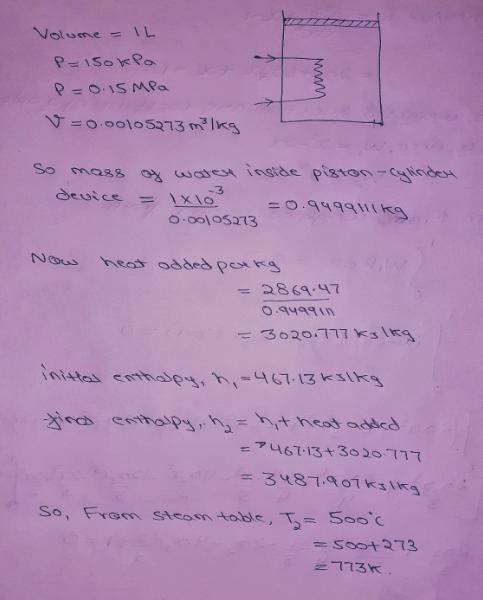 Volume = 1L
P = 150 kPa
P = 0.15 MPa
V = 0.00105273 m³/kg
So mass of water inside piston-cylinder
device = 1×10⁻³ / 0.00105273 = 0.9499111 kg
Now heat added per kg
= 2869.47 / 0.949911
= 3020.777 KJ/kg
initial enthalpy, h₁ = 467.13 KJ/kg
final enthalpy, h₂ = h₁ + heat added
= 467.13 + 3020.777
= 3487.907 KJ/kg
So, From steam table, T₂ = 500°C
= 500 + 273
= 773K.